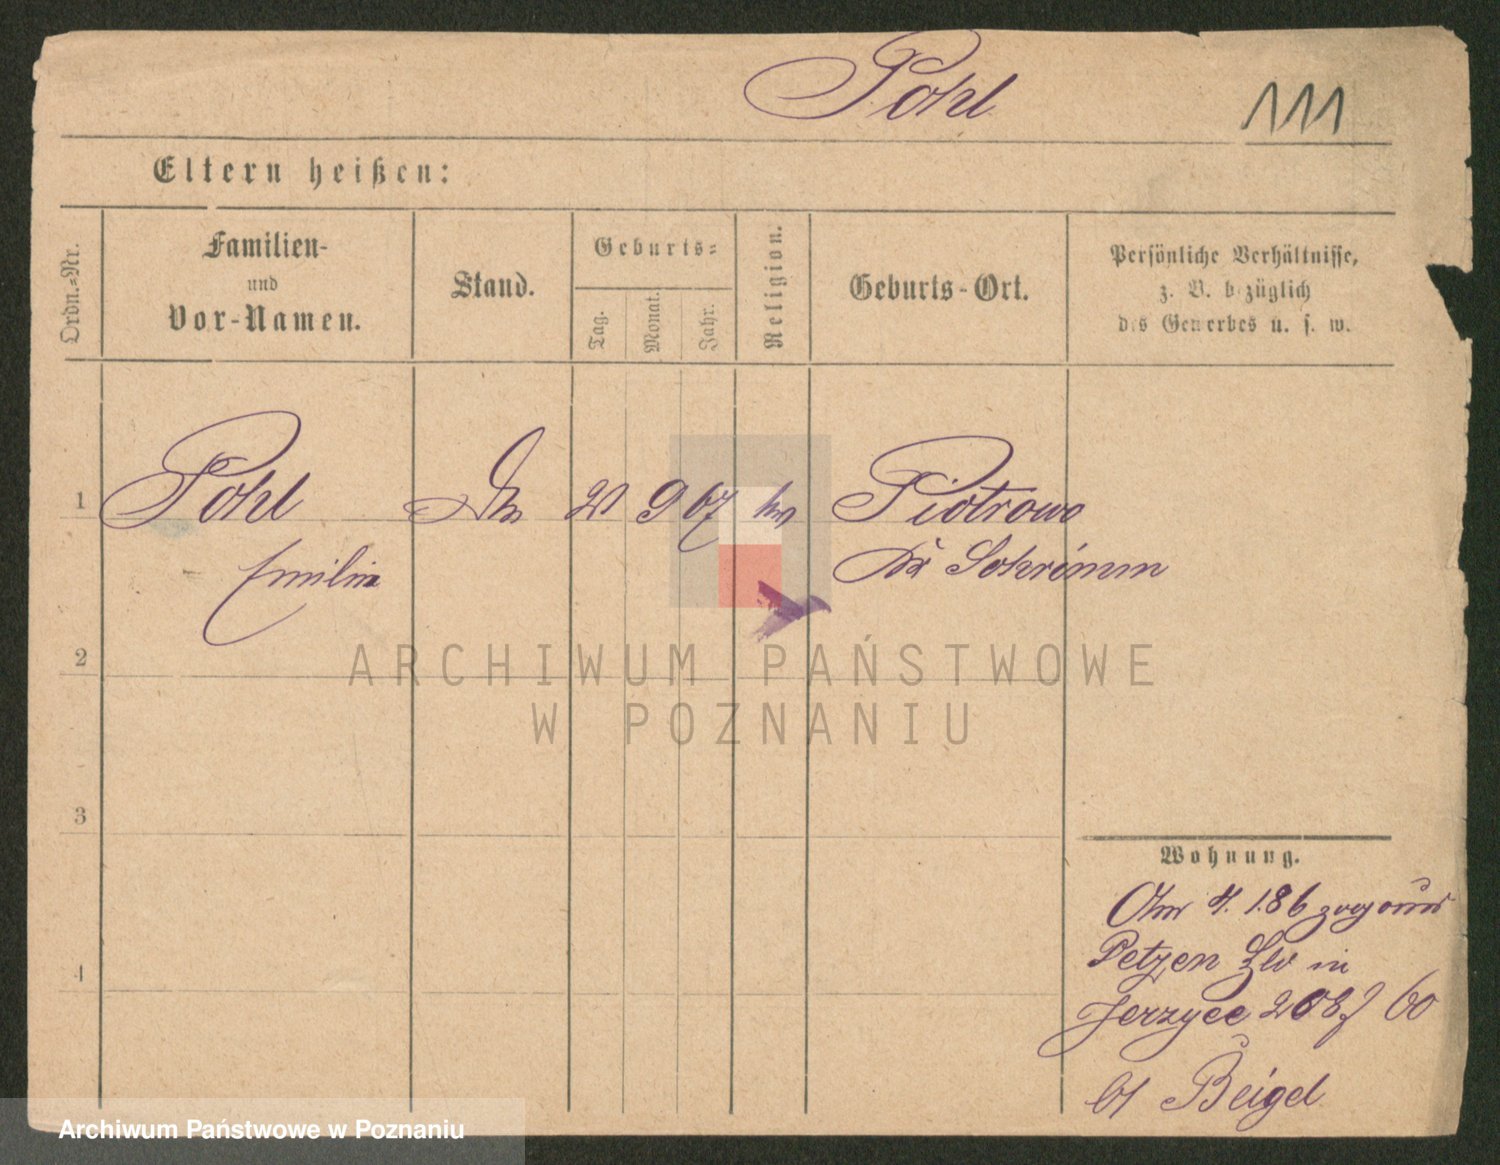 Pohl
111
Eltern heißen:
Ordn.-Nr.
Familien-
und
Vor-Namen.
Stand.
Geburts-
Tag.
Monat.
Jahr.
Religion.
Geburts-Ort.
Persönliche Verhältnisse,
z. B. bezüglich
des Gewerbes u. s. w.
1
Pohl
9 67
Piotrowo
Emilie
Kr Schrimm
2
ARCHIWUM PAŃSTWOWE
W POZNANIU
3
Wohnung.
4. 1.86
4
Petzen in
Jerzyce 208
bei Beigel
Archiwum Państwowe w Poznaniu